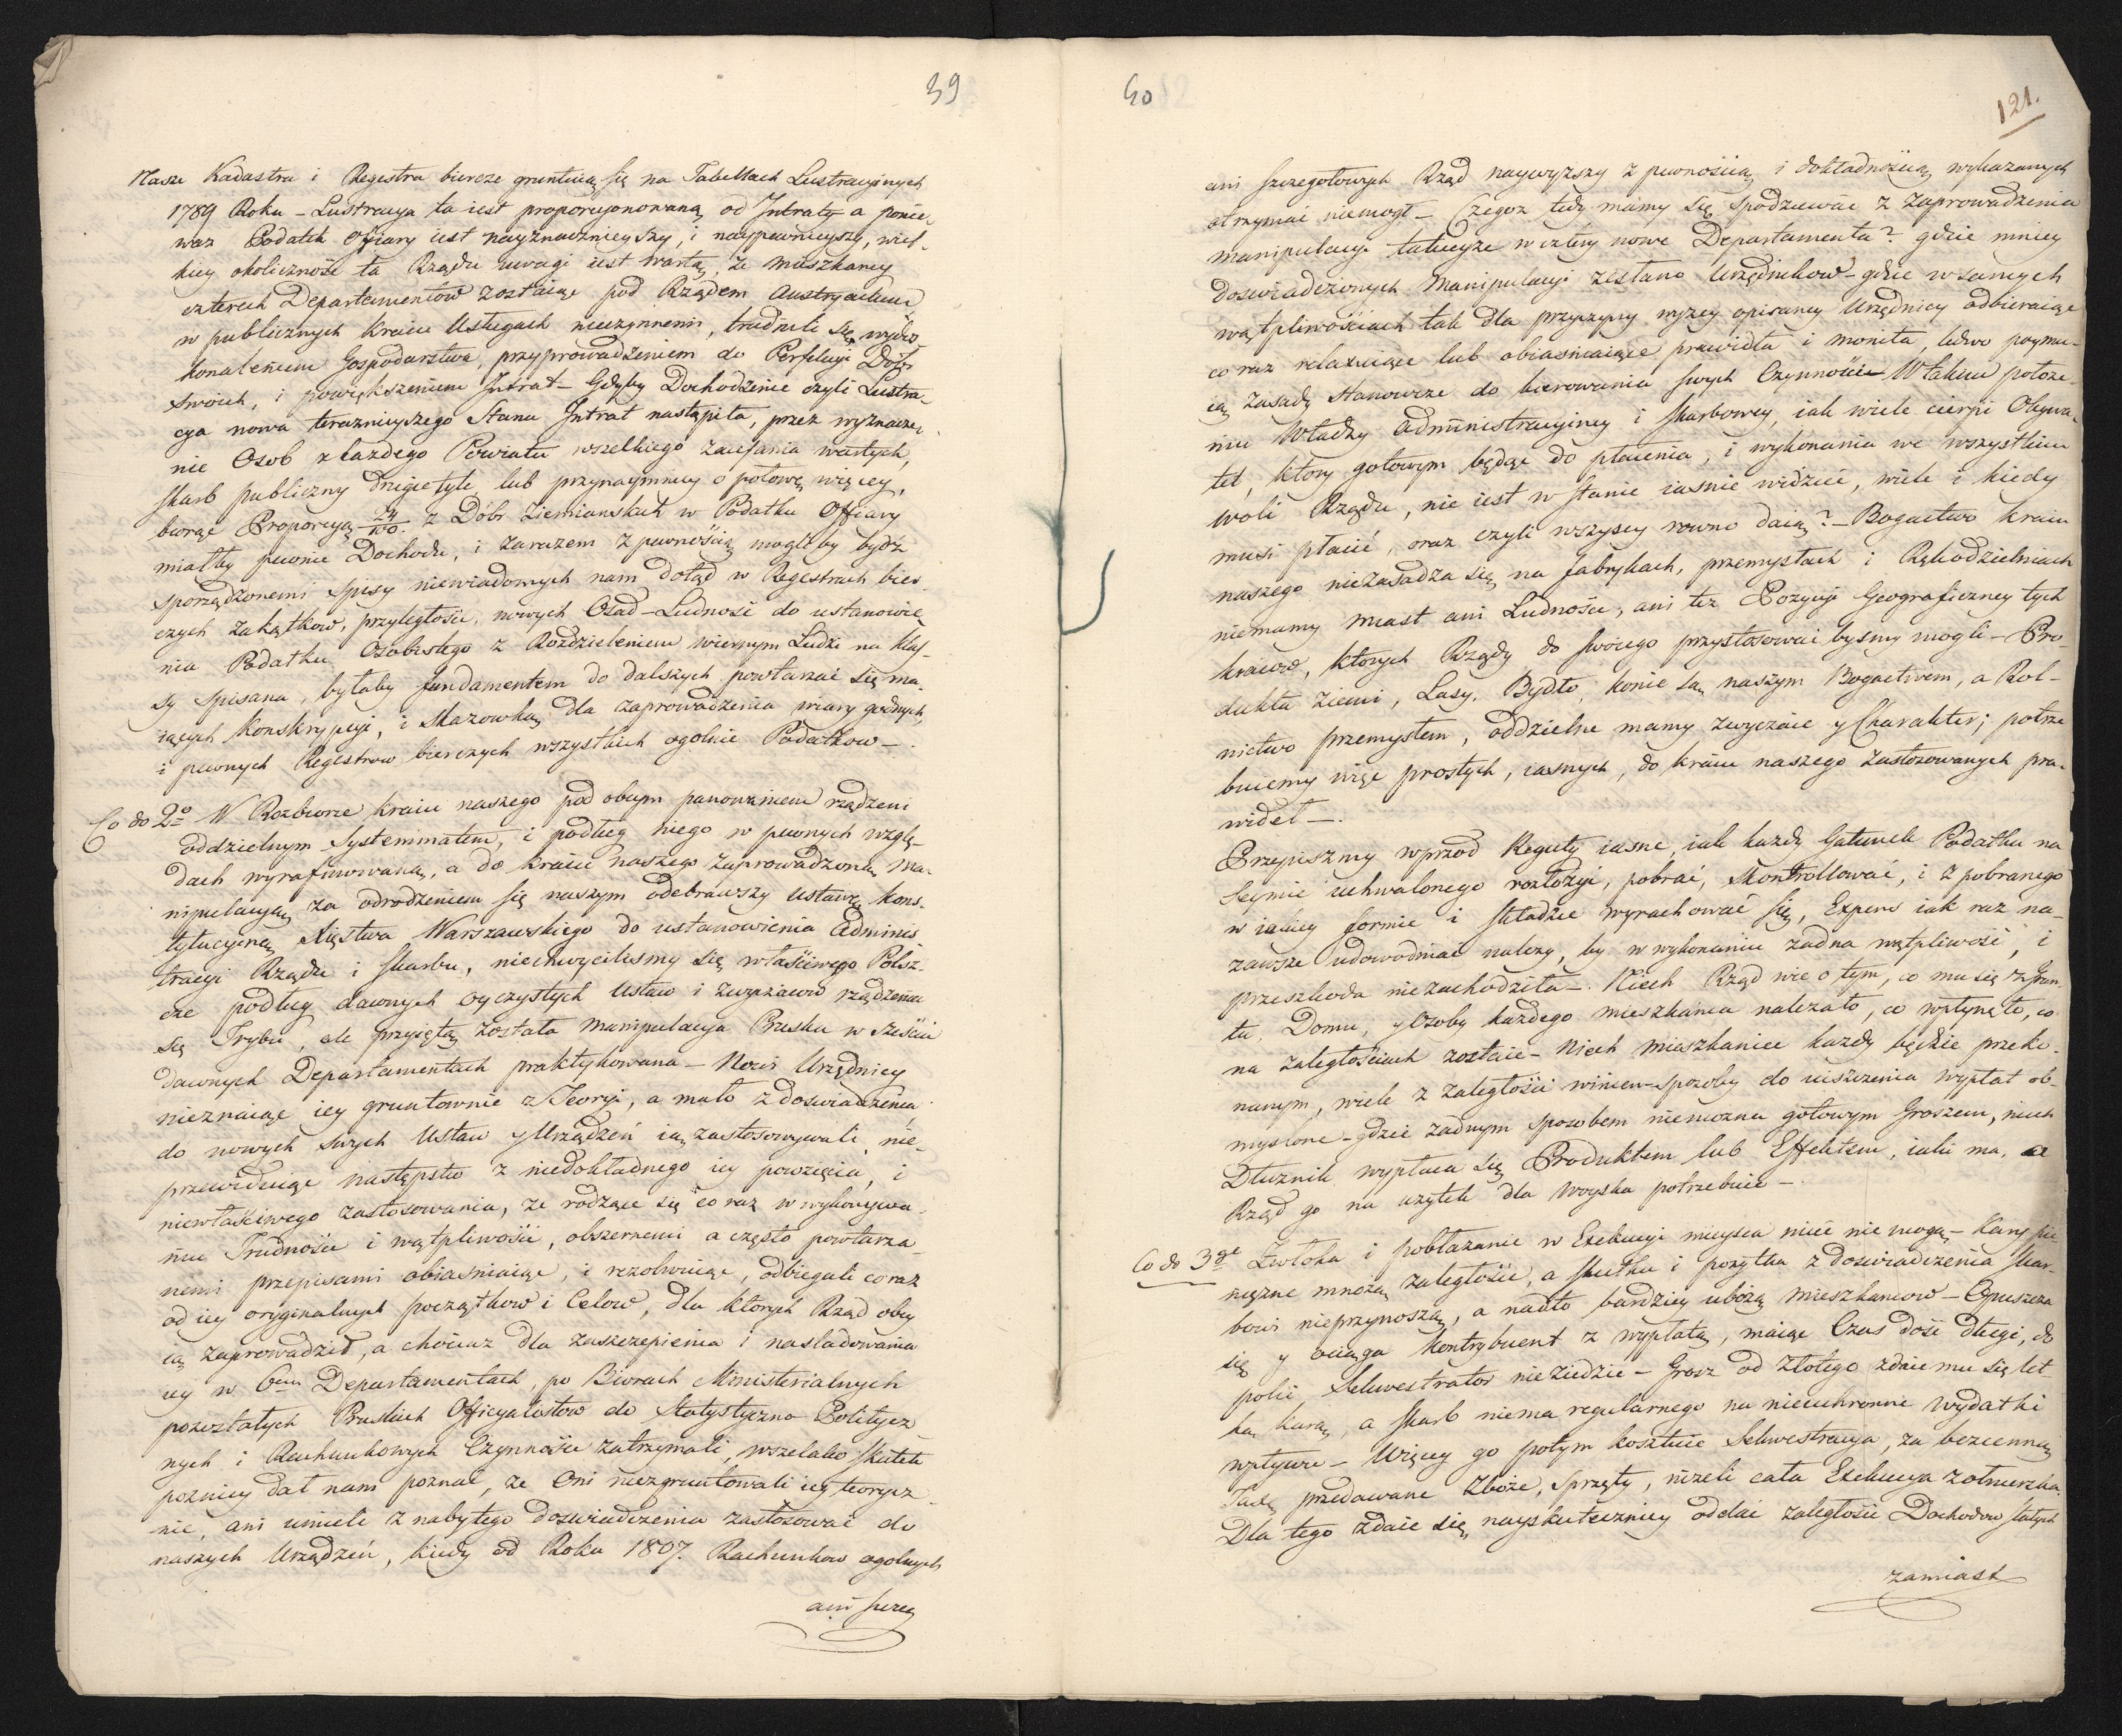 39
Nasze Kadastra i Regestra biercze gruntuią się na Tabellach Lustracyinych
1789 Roku – Lustracya ta iest proporcyonowaną od Intraty a ponie-
waz Podatek Ofiary iest nayznacznieyszy, i naypewnieyszy, wiel-
kiey okoliczność ta Rządu uwagi iest wartą, że mieszkancy
czterech Departamentow zostaiąc pod Rządem Austryackim
w publicznych Kraiu Usługach nieczynnemi, trudnili się wydos-
konaleniem Gospodarstwa, przyprowadzeniem do Perfekcyi Dobr
swoich, i powiększeniem Intrat – Gdyby Dochodzenie czyli Lustra-
cya nowa teraznieyszego Stanu Intrat nastąpiła, przez wyznacze-
nie Osob z każdego Powiatu wszelkiego zaufania wartych,
Skarb publiczny drugie tyle lub przynaymniey o połowę więcey,
biorąc Proporcyą 24/100. z Dobr Ziemianskich w Podatku Offiary
miałby pewnie Dochodu, i zarazem z pewnością mogłyby bydź
sporządzonemi Spisy niewiadomych nam dotąd w Regestrach bier-
czych Zakątkow, przyległości, nowych Osad – Ludność do ustanowie-
nia Podatku Osobistego z Rozdzieleniem wiernym Ludzi na Klas-
sy spisana, byłaby fundamentem do dalszych powtarzać się ma-
iących Konskrypcyi, i skazowką dla zaprowadzenia wiary godnych,
i pewnych Regestrow bierczych wszystkich ogolnie Podatkow –
Co do 2o W Rozbiorze Kraiu naszego pod obcym panowaniem rządzeni
oddzielnym Systemmatem, i podług niego w pewnych wzglę-
dach wyrafinowaną, a do Kraiu naszego zaprowadzoną Ma-
nipulacyą, za odrodzeniem się naszym odebrawszy Ustawę Kons-
tytucyiną Xięstwa Warszawskiego do ustanowienia Adminis-
tracyi Rządu i Skarbu, niechwyciliśmy się właściwego Polsz-
cze podług dawnych oyczystych Ustaw i zwyczaiow rządzenia
się Trybu, ale przyiętą została Manipulacya Pruska w sześciu
dawnych Departamentach praktykowana – Nowi Urzędnicy
nieznaiąc iey gruntownie z Teoryi, a mało z doswiadczenia
do nowych swych Ustaw y Urządzeń ią zastosowywali nie-
przewiduiąc następstw z niedokładnego iey powzięcia, i
niewłaściwego zastosowania, że rodzące się co raz w wykonywa-
niu Trudności i wątpliwości, obszernemi a często powtarza-
nemi przepisami obiasniaiąc, i rezolwuiąc, odbiegali co raz
od iey oryginalnych początkow i Celow, dla ktorych Rząd obcy
ią zaprowadził, a chociaz dla zaszczepienia i nasladowania
iey w 6ciu Departamentach, po Biorach Ministerialnych
pozostałych Pruskich Officyalistow do Statystyczno-Politycz-
nych i Rachunkowych Czynności zatrzymali, wszelako Skutek
poźniey dał nam poznać, że Oni niezgruntowali iey teorycz-
nie, ani umieli z nabytego doswiadczenia zastosować do
naszych Urządzeń, kiedy od Roku 1807. Rachunkow ogolnych
ani szcze
40
121.
ani szczegołowych Rząd naywyższy z pewnością i dokładnością wykazanych
otrzymać niemogł – Czegoz tedy mamy się spodziewać z zaprowadzenia
manipulacyi takieyże w cztery nowe Departamenta? gdzie mniey
doswiadczonych Manipulacyi zestano Urzędnikow – gdzie w samych
wątpliwościach tak dla przyczyny wyżey opisaney Urzędnicy odbieraiąc
co raz relaxuiące lub obiasniaiące prawidła i monita, ledwo poymu-
ią zasady stanowcze do kierowania swych Czynności – W takim położe-
niu Władzy Administracyiney i Skarbowey, iak wiele cierpi Obywa-
tel, ktory gotowym będąc do płacenia, i wykonania we wszystkim
woli Rządu, nie iest w stanie iasnie widzieć, wiele i kiedy
musi płacić, oraz czyli wszyscy rowno daią? – Bogactwo Kraiu
naszego niezasadza się na fabrykach, przemysłach i Rękodzielniach
niemamy Miast ani Ludności, ani też Pozycyi Geograficzney tych
kraiow, ktorych Rządy do swoiego przystosować bysmy mogli – Pro-
dukta Ziemi, Lasy, Bydło, Konie są naszym Bogactwem, a Rol-
nictwo przemysłem, oddzielne mamy zwyczaie y Charakter; potrze-
buiemy więc prostych, iasnych, do Kraiu naszego zastosowanych pra-
wideł –.
Przepiszmy wprzod Reguły iasne, iak każdy Gatunek Podatku na
Seymie uchwalonego rozłożyć, pobrać, Skontrollować, i z pobranego
w iakiey formie i składzie wyrachować się, Expens iak raz na-
zawsze udowodniać należy, by w wykonaniu żadna wątpliwość, i
przeszkoda niezachodziła –. Niech Rząd wie o tym, co mu się z Grun-
tu, Domu, y Osoby każdego mieszkanca należało, co wpłynęło, co
na zaległościach zostaie – Niech Mieszkaniec każdy będzie przeko-
nanym, wiele z zaległości winien – sposoby do uiszczenia wypłat ob-
myslone – gdzie żadnym sposobem niemożna gotowym Groszem, niech
Dłużnik wypłaca się Produktem lub Effektem, iaki ma, a
Rząd go na użytek dla Woyska potrzebuie –
Co do 3go Zwłoka i pobłażanie w Exekucyi mieysca mieć nie mogą – Kary pie-
niężne mnożą zaległości, a skutku i pożytku z doswiadczenia Skar-
bowi nieprzynoszą, a nadto bardziey ubożą Mieszkancow – Opuszcza
się y ociąga Kontrybuent z wypłatą, maiąc Czas dość długi, do
poki Sekwestrator nieziedzie – Grosz od złotego zdaie mu się let-
ką karą, a Skarb niema regularnego na nieuchronne Wydatki
wpływu – Więcey go potym kosztuie Sekwestracya, za bezcenną
Taxę przedawane Zboże, Sprzęty, niżeli cała Exekucya Zołnierska.
Dla tego zdaie się nayskuteczniey oddać zaległości Dochodow stałych
zamiast